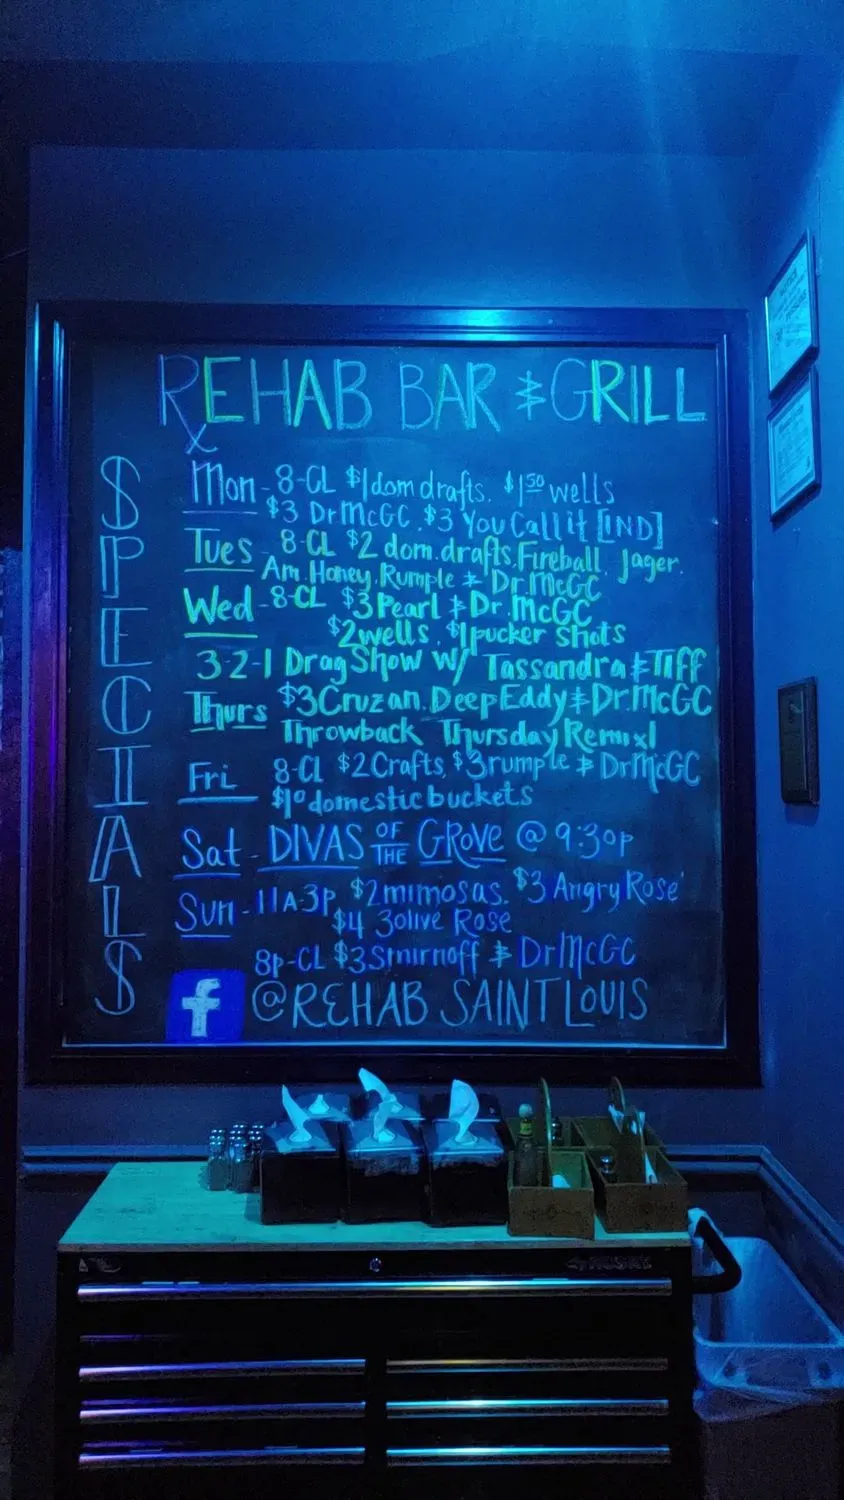 REHAB BAR & GRILL
SPECIALS
Mon - 8-CL $1 dom drafts. $1.50 wells
$3 DrMcGC. $3 You Call it [IND]
Tues 8-CL $2 dom. drafts, Fireball Jager.
Am. Honey, Rumple & Dr. McGC
Wed - 8-CL $3 Pearl & Dr. McGC
$2 wells, $1 pucker shots
3-2-1 Drag Show w/ Tassandra & Tiff
Thurs $3 Cruzan, Deep Eddy & Dr. McGC
Throwback Thursday Remix!
Fri 8-CL $2 Crafts, $3 rumple & DrMcGC
$10 domestic buckets
Sat - DIVAS OF THE GROVE @ 9:30p
Sun - 11A-3p, $2 mimosas, $3 Angry Rose'
$4 3olive Rose
8p-CL $3 Smirnoff & DrMcGC
f @REHAB SAINT LOUIS
HUSKY